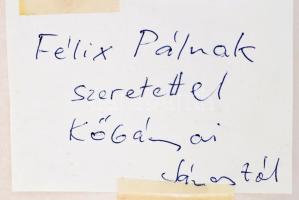 Félix Pálnak
szeretettel
Kőbányai
Jánostól